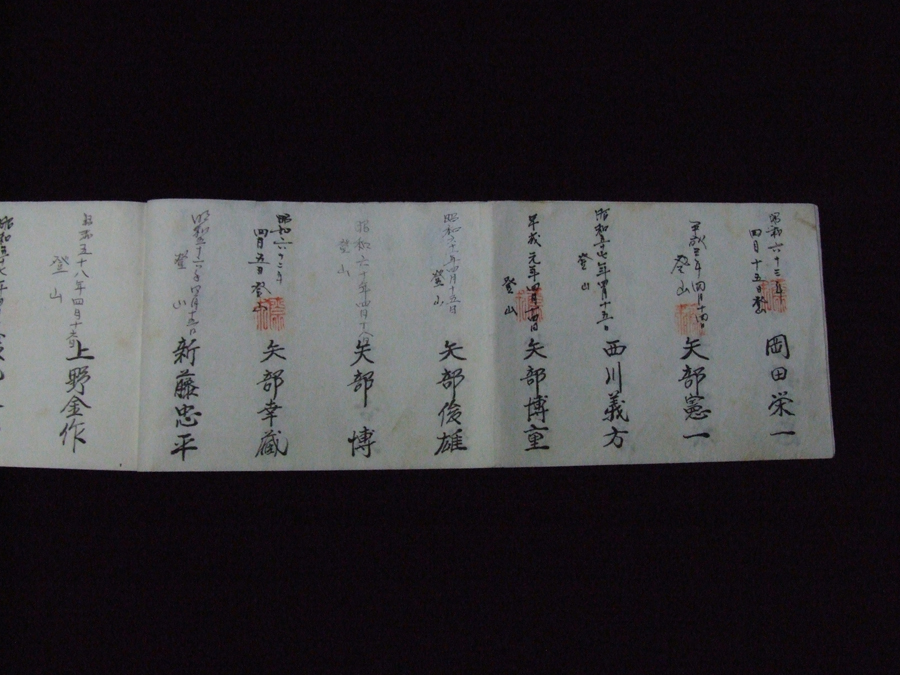 昭和六十三年
四月十五日登山
岡田栄一
平成三年四月十四日
登山
矢部憲一
昭和五十七年四月十五日
登山
西川義方
平成元年四月十四日
登山
矢部博重
昭和六十二年四月十五日
登山
矢部俊雄
昭和六十年四月十八日
登山
矢部博
昭和六十二年
四月五日登山
矢部幸蔵
昭和五十六年四月十五日
登山
新藤忠平
昭和五十八年四月十五日
登山
上野金作